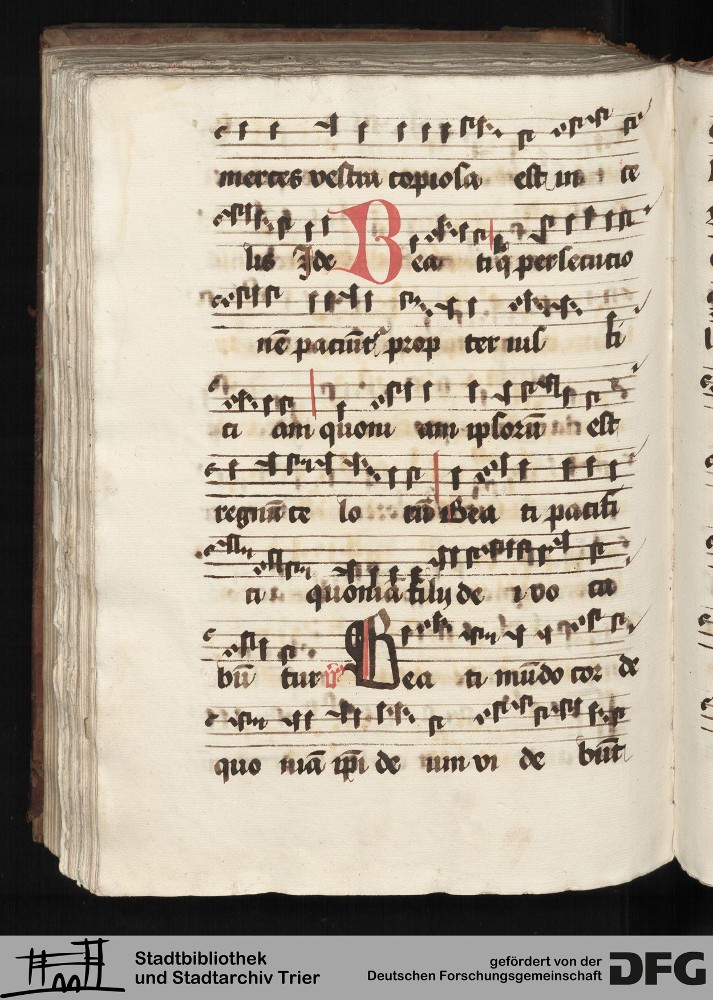 merces vestra copiosa est in ce
lis Ide Bea ti q persecucio
nē paciūt prop ter iusti
ci am quoni am ipsorū est
regnū ce lo rū Bea ti pacifi
ci quoniā filij de i vo ca
bū tur Bea ti mūdo cor de
quo niā ip̄i de um vi de būt
Stadtbibliothek
und Stadtarchiv Trier
gefördert von der
Deutschen Forschungsgemeinschaft
DFG